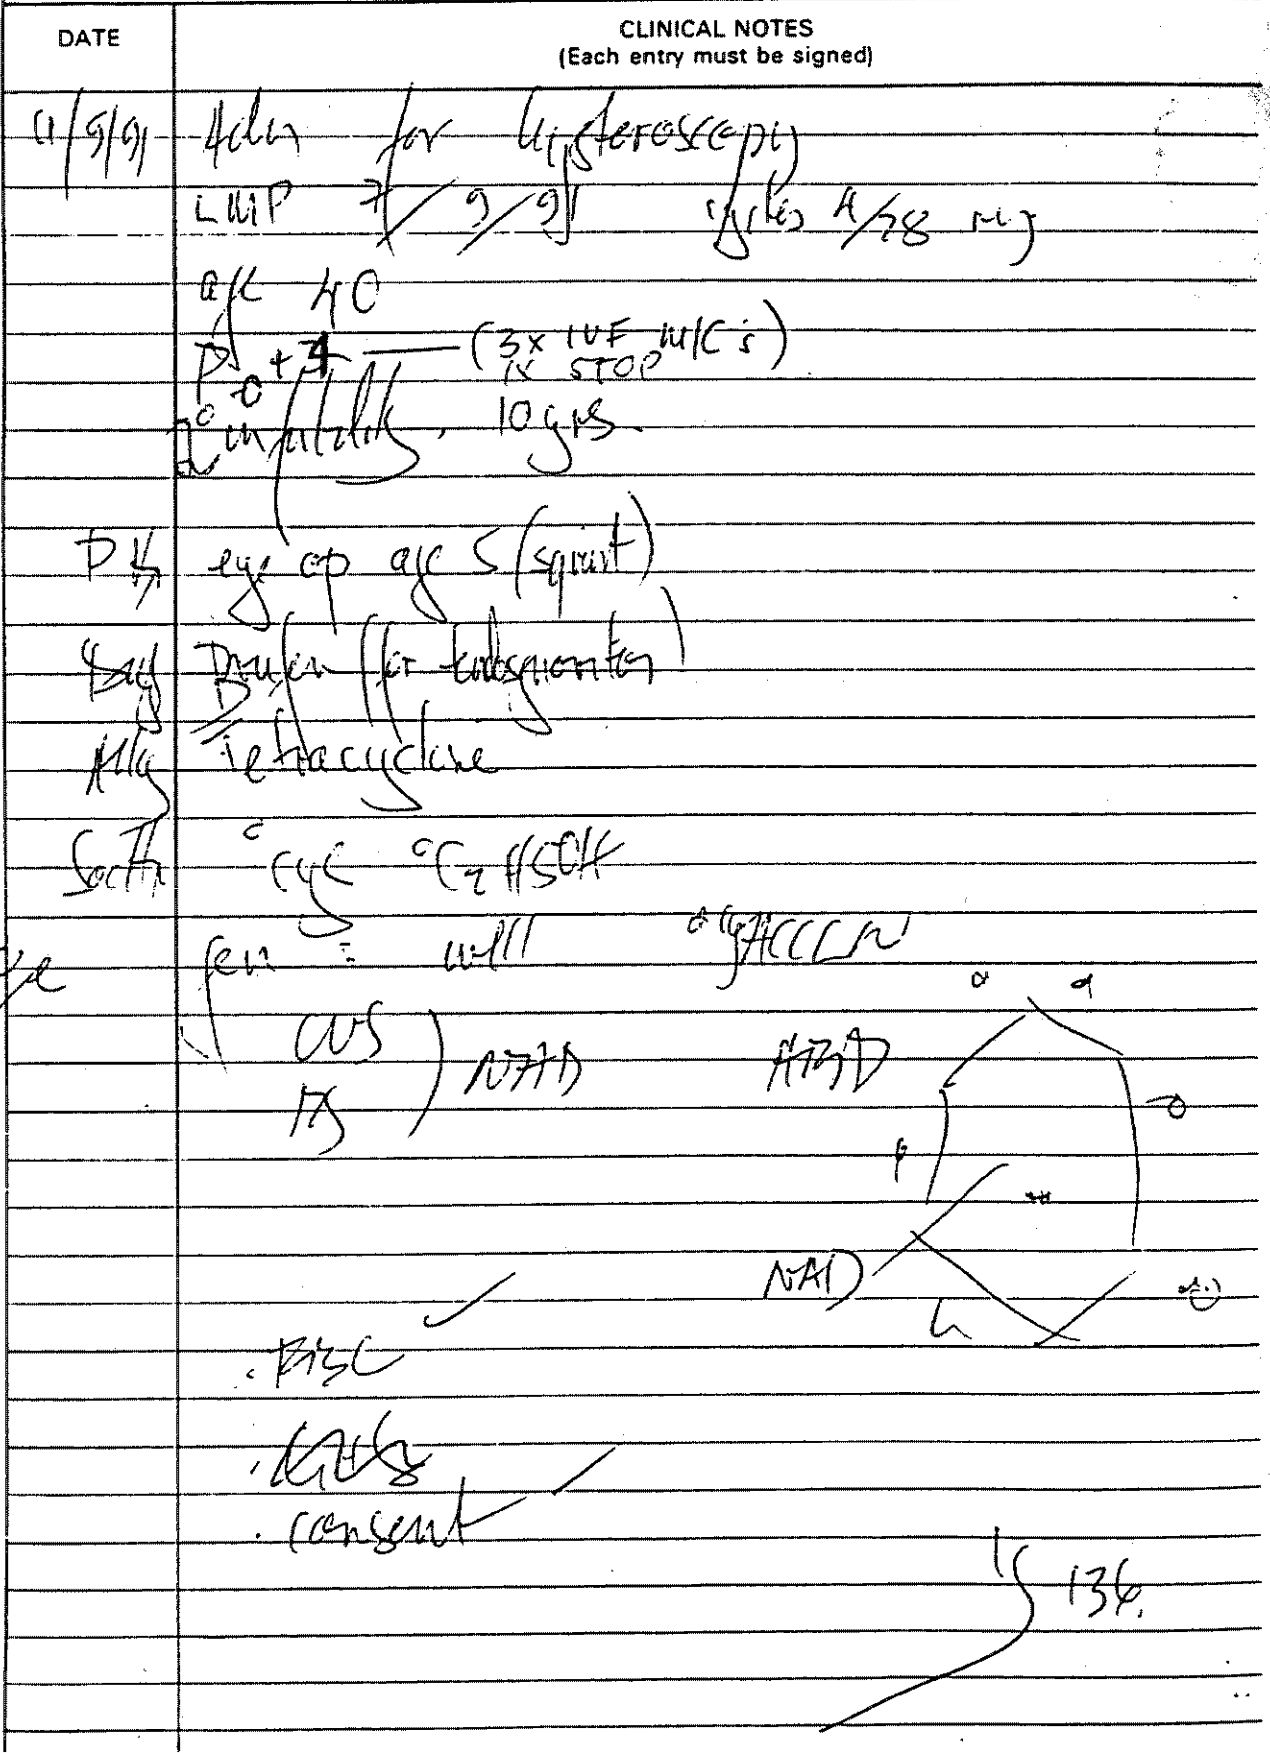 DATE
CLINICAL NOTES
(Each entry must be signed)
11/9/91 Adm for hysteroscopy
LMP 7/9/91 cycles 4/28 reg
age 40
P0+4 (3x IVF M/C's)
1x STOP
2° infertility, 10 yrs.
eye op age 5 (squint)
Drug Brufen (for endometriosis)
Allg Tetracycline
Soc Hx °cyg °C2H5OH
gen = well
CVS
RS ) NAD ABD
NAD
. FBC
. consent
136.